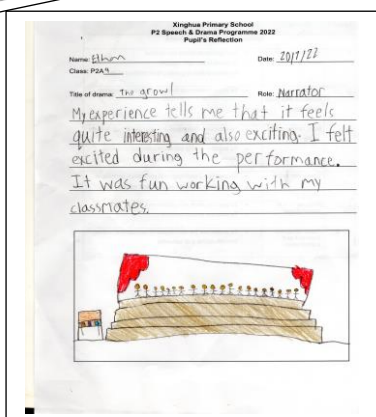 Xinghua Primary School
P2 Speech & Drama Programme 2022
Pupil's Reflection
Name: Ethan
Date: 20/7/22
Class: P2A9
Title of drama: The growl
Role: Narrator
My experience tells me that it feels
quite interesting and also exciting. I felt
excited during the performance.
It was fun working with my
classmates.